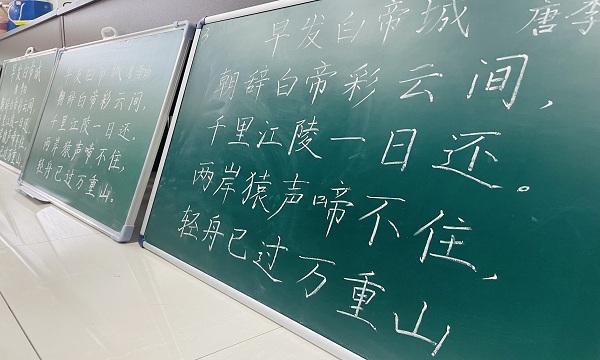 早发白帝城 唐李
朝辞白帝彩云间，
千里江陵一日还。
两岸猿声啼不住，
轻舟已过万重山
早发白帝城
朝辞白帝彩云间，
千里江陵一日还。
两岸猿声啼不住，
轻舟已过万重山。